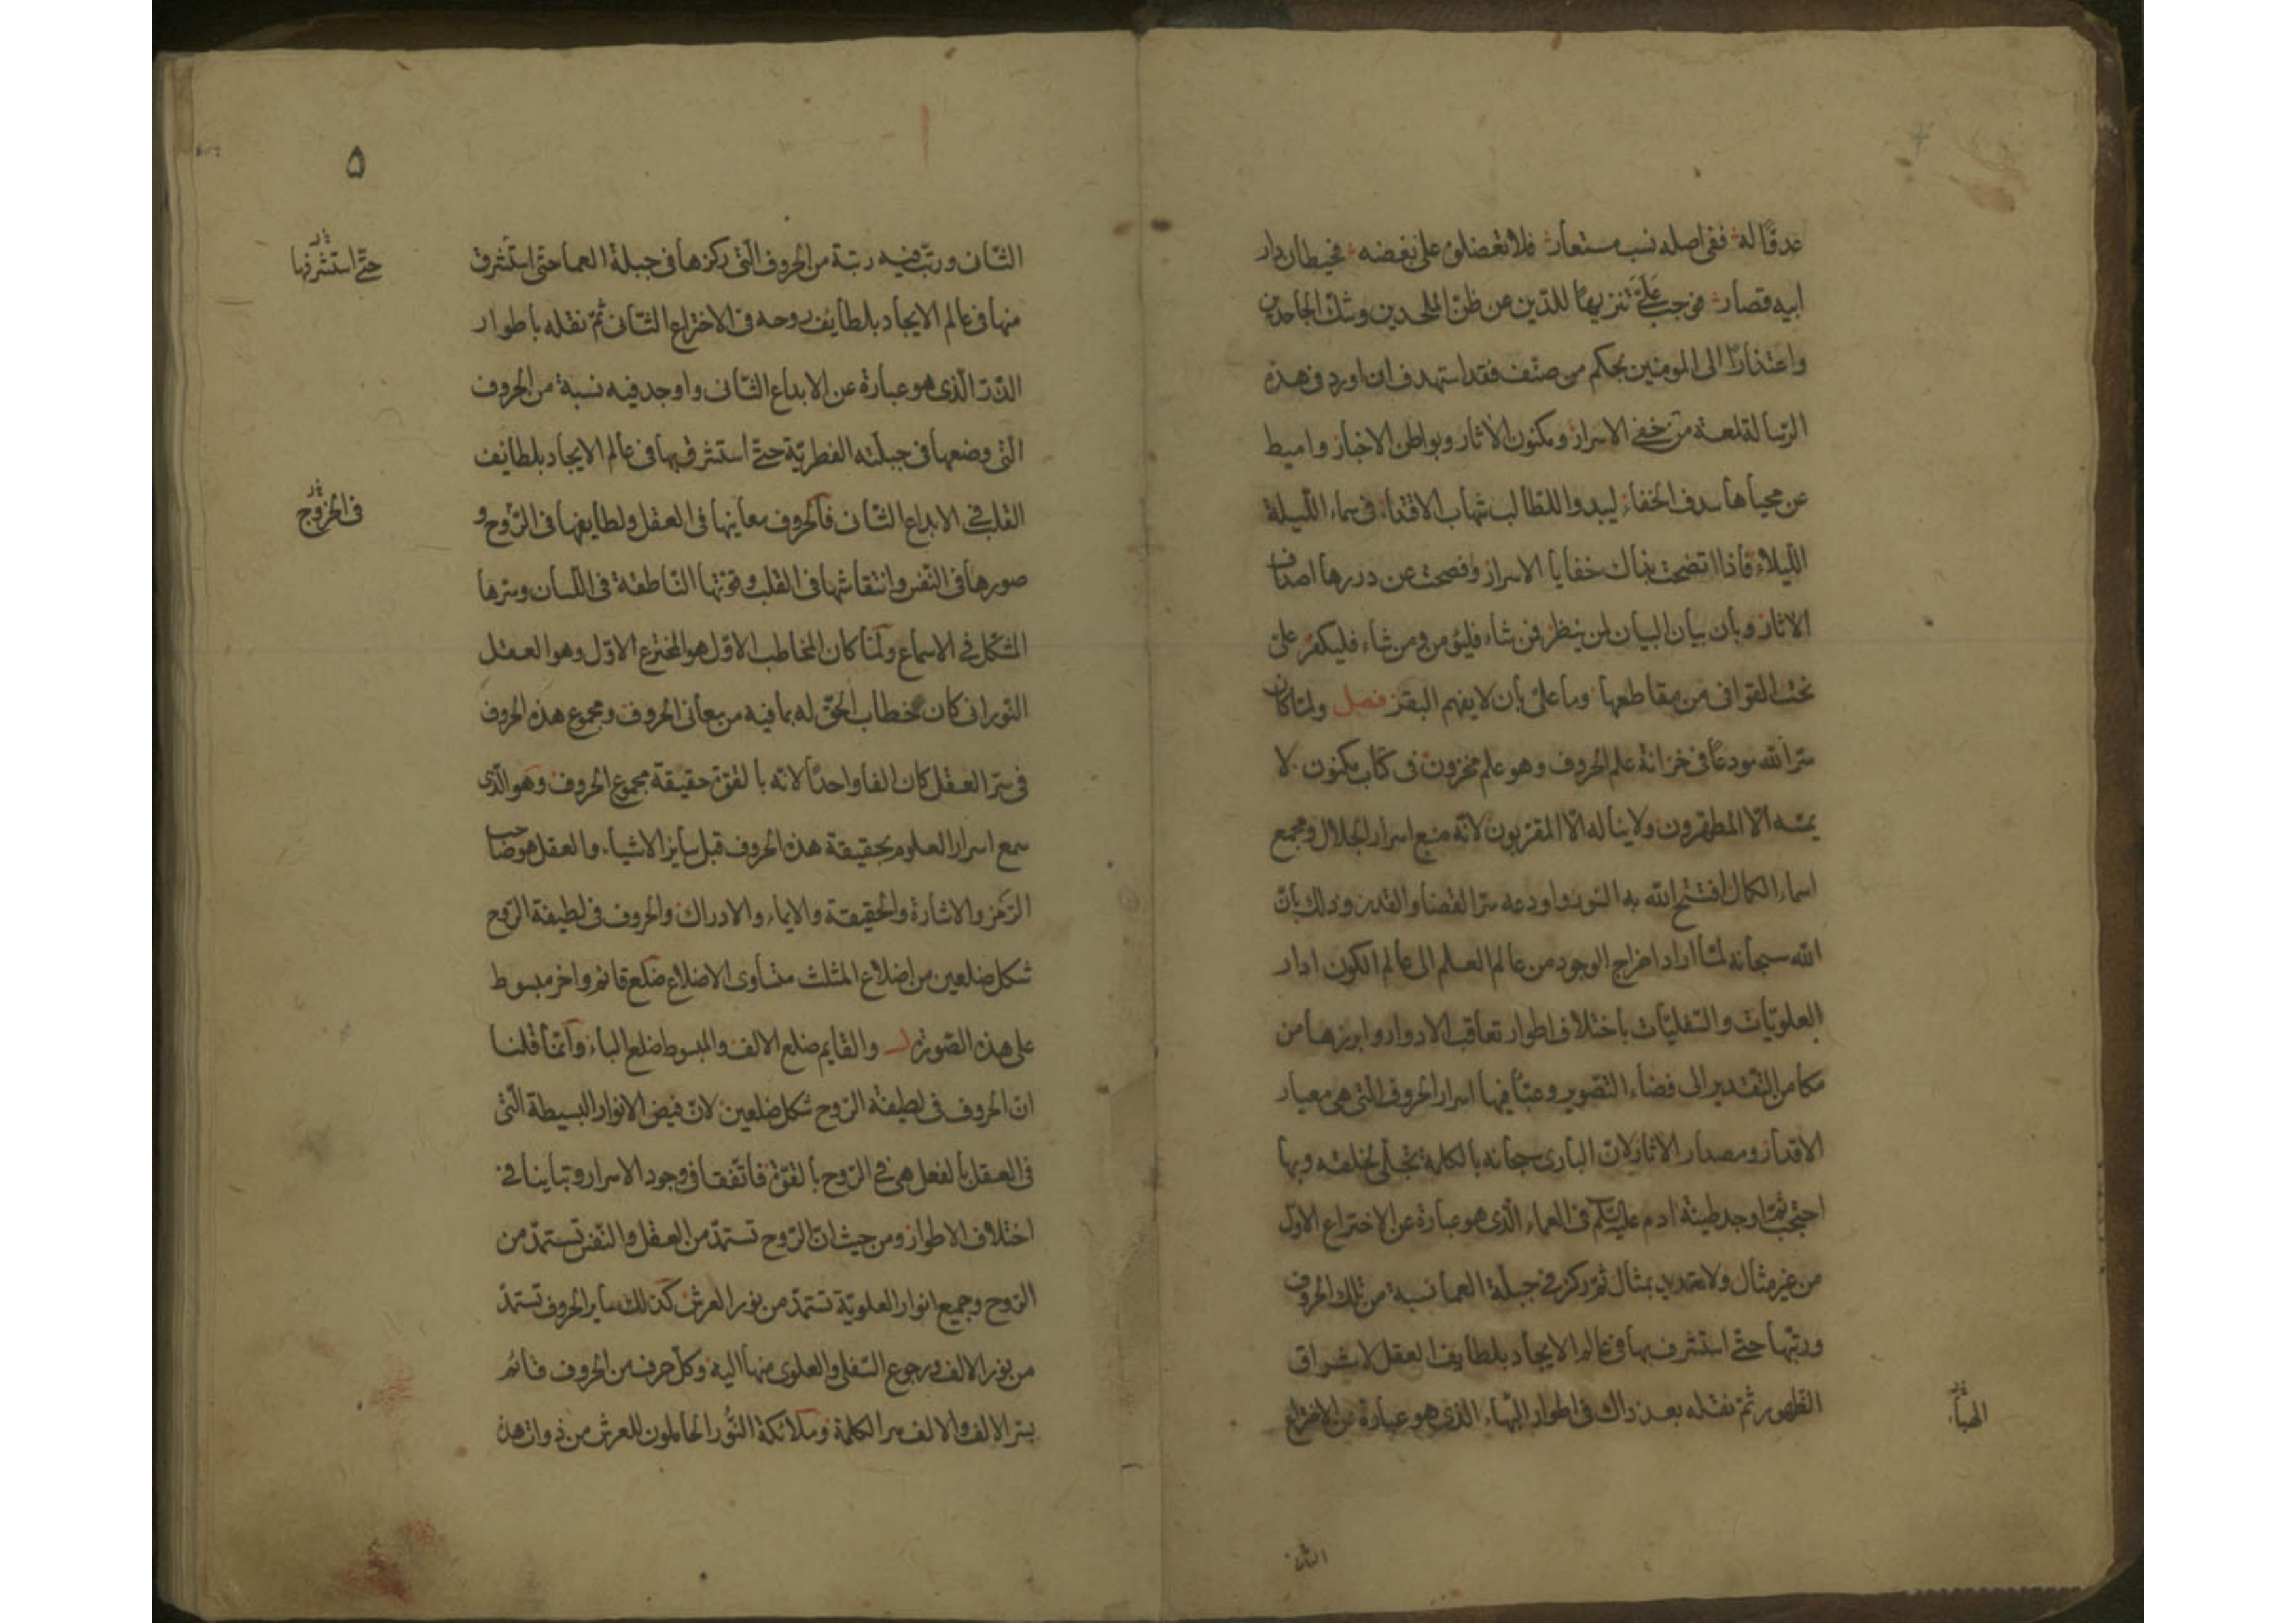 عدوًّا له ففی اصله نسب مستعار فلا تعضلوه علی بغضه فحیطان دار
ابیه قصار فوجب علیَّ تنزیهًا للدّین عن ظنّ الملحدین وشکّ الجاحدین
واعتذارًا الی المومنین بحکم من صنّف فقد استهدف ان اورد فی هذه
الرّسالة لمعة من خفی الاسرار ومکنون الاثار وبواطن الاخبار وامیط
عن محیاها سدف الخفاء لیبدو اللطّالب شهاب الاقتداء فی سماء اللّیلة
اللّیلاء فاذا اتضحت بذاک خفایا الاسرار وفصحت عن دررها اصداف
الاثار وبان بیان البیان لمن ینظر فمن شاء فلیؤمن ومن شاء فلیکفر علیّ
نحت القوافی من مقاطعها وما علیّ بان لا یفهم البقر فصل ولمّا کان
سرّ الله مودعًا فی خزانة علم الحروف وهو علم مخزون فی کتاب مکنون لا
یمسّه الّا المطهّرون ولا یناله الّا المقرّبون لانّه منبع اسرار الجلال ومجمع
اسماء الکمال افتتح الله به السّور واودعه سرّ القضا والقدر وذلک بانّ
الله سبحانه لمّا اراد اخراج الوجود من عالم العلم الی عالم الکون ادار
العلویّات والسّفلیّات باختلاف اطوار تعاقب الادوار وابرزها من
مکامن التّقدیر الی فضاء التّصویر وعبّأ فیها اسرار الحروف الّتی هی معیار
الاقدار ومصدار الاثار لانّ الباری سبحانه بالکلمة تجلّی لخلقه وبها
احتجب ثمّ اوجد طینة ادم علیه السّلم فی العماء الّذی هو عبارة عن الاختراع الاوّل
من غیر مثال ولا تعدید بمثال ثمّ رکز فی جبلّة العما نسبة من تلک الحروف
ورتّبها حتّی استشرف بها فی عالم الایجاد بلطایف العقل لاشراق
الظّهور ثمّ نقله بعد ذاک فی اطوار الهباء الّذی هو عبارة عن الاختراع
الهباء
الثّانی
۵
الثّانی ورتّب فیه رتبة من الحروف الّتی رکزها فی جبلة العما حتّی استشرف
حتّی استشرفها
منها فی عالم الایجاد بلطایف روحه فی الاختراع الثّانی ثمّ نقله باطوار
الذّرّ الّذی هو عبارة عن الابداع الثّانی واوجد فیه نسبة من الحروف
الّتی وضعها فی جبلّته الفطریّة حتّی استشرف بها فی عالم الایجاد بلطایف
القلب فی الابداع الثّانی فالحروف معاینها فی العقل ولطایفها فی الرّوح و
فی الخروج
صورها فی النّفس وانتقاشها فی القلب وقوّتها النّاطقة فی اللّسان وسرّها
المشکل فی الاسماع ولمّا کان المخاطب الاوّل هو المخترع الاوّل وهو العقل
النّورانی کان خطاب الحقّ له بما فیه من معانی الحروف ومجموع هذه الحروف
فی سرّ العقل کان الفا واحدًا لانّه بالقوّة حقیقة مجموع الحروف وهو الّذی
سمع اسرار العلوم بحقیقة هذه الحروف قبل سایر الاشیاء والعقل هو صاحب
الرّمز والاشارة والحقیقة والایماء والادراک والحروف فی لطیفة الرّوح
شکل ضلعین من اضلاع المثلث متساوی الاضلاع ضلع قائم واخر مبسوط
علی هذه الصّورة ل والقایم ضلع الالف والمبسوط ضلع الباء وانّما قلنا
انّ الحروف فی لطیفة الرّوح شکل ضلعین لانّ فیض الانوار البسیطة الّتی
فی العقل بالفعل هی فی الرّوح بالقوّة فاتّفقا فی وجود الاسرار وتباینا فی
اختلاف الاطوار ومن حیث انّ الرّوح تستمدّ من العقل والنّفس تستمدّ من
الرّوح وجمیع انوار العلویّة تستمدّ من نور العرش کذلک سایر الحروف تستمدّ
من نور الالف ورجوع السّفلی والعلوی منها الیه وکلّ حرف من الحروف قائم
بسرّ الالف والالف سر الکلمة وملائکة النّور الحاملون للعرش من ذوات هذه